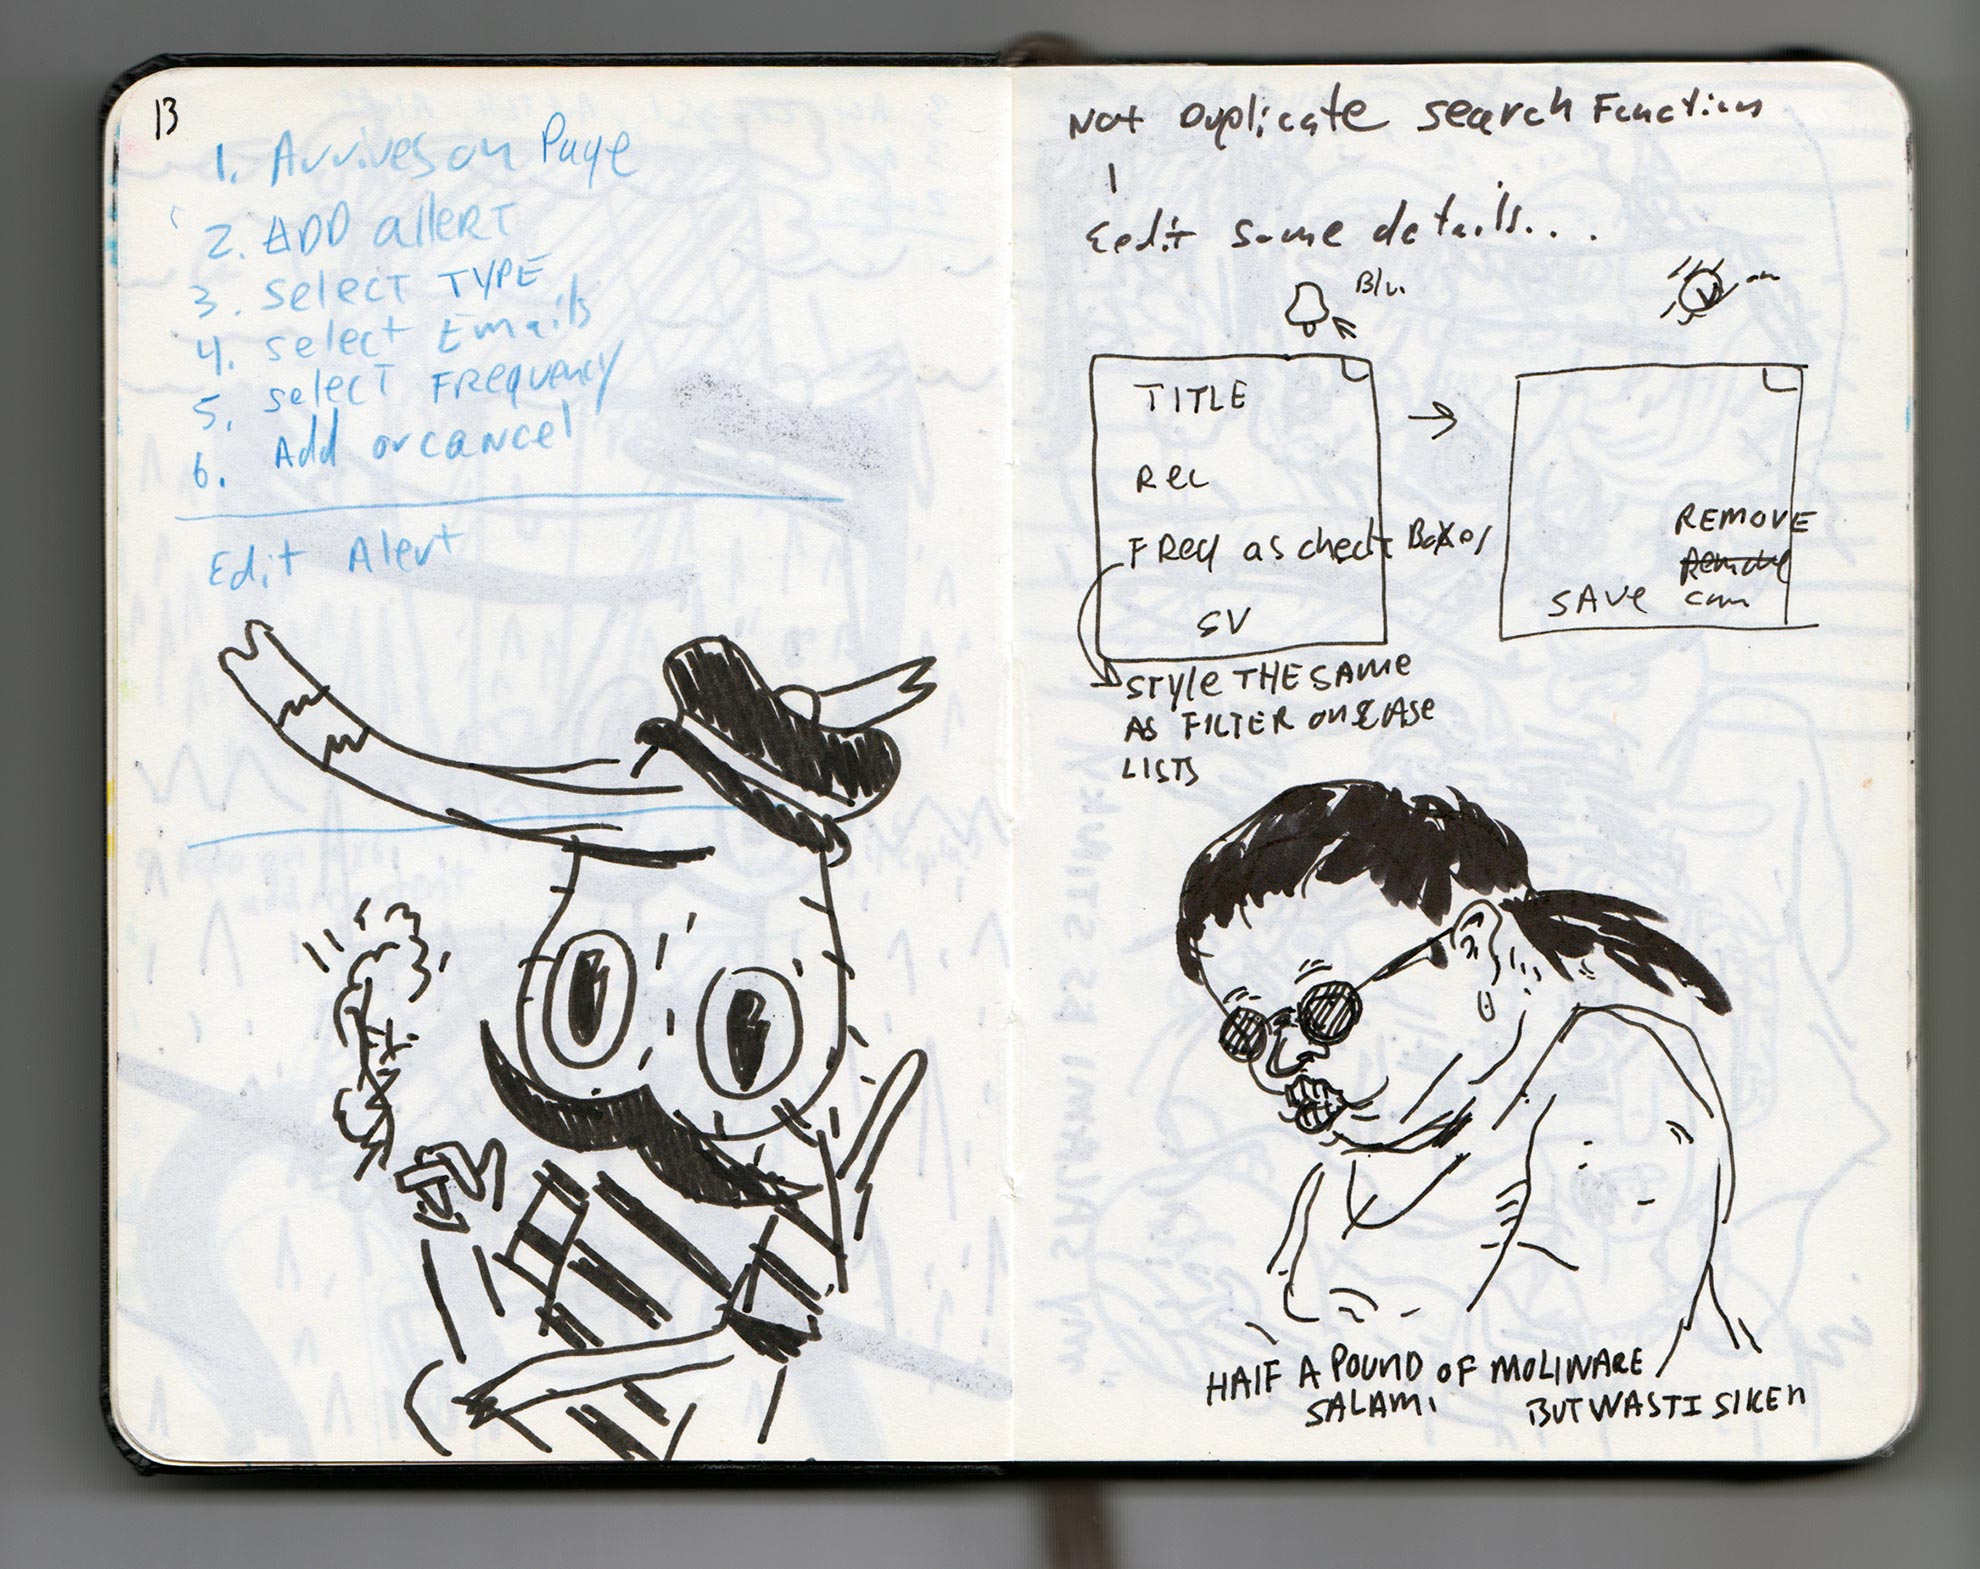 13
1. Arrives on Page
2. ADD allert
3. select TYPE
4. select Emails
5. select Frequency
6. Add or cancel
Edit Alert
Not Duplicate search Function
Eedit some details...
Blu
TITLE
Rec
FReq as check Boxes
SV
STyle THE SAMe
AS FILTER on CASe
LISTS
REMOVE
SAVe can
HAlF A POUND OF MOLINARE
SALAMI BUT WASTISIKEN
MY SALAMI IS STINKY